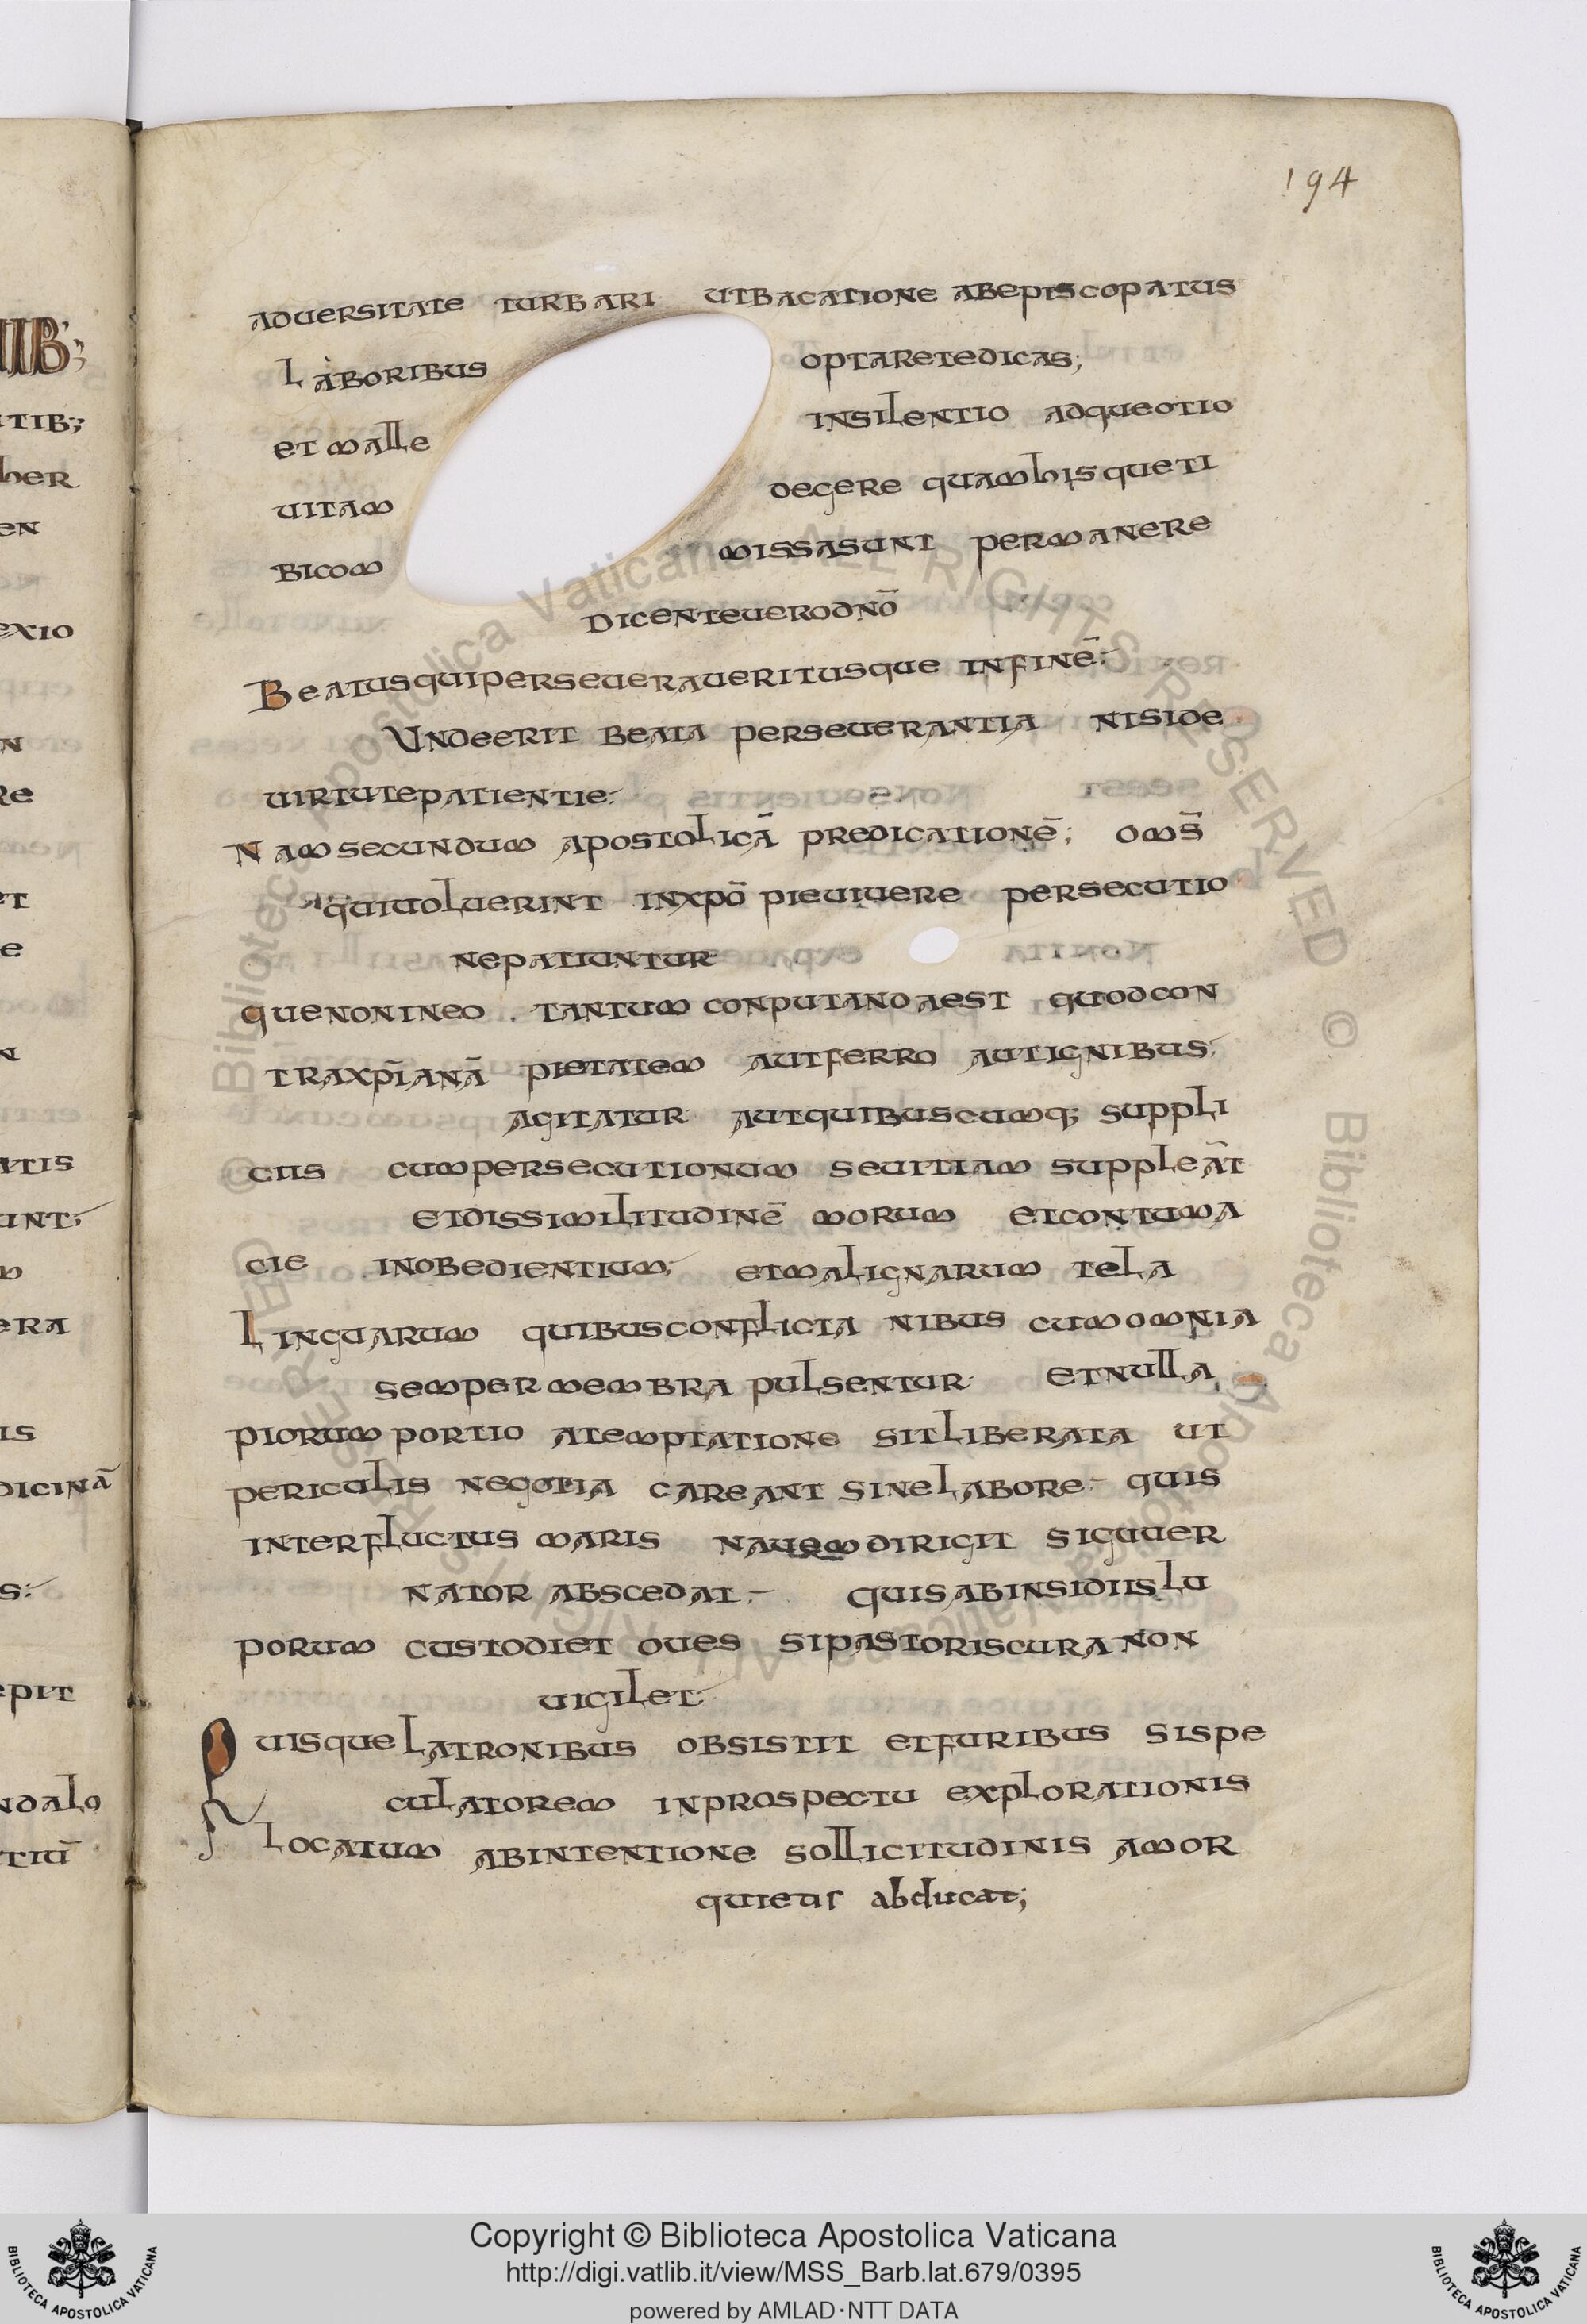 194
ADUERSITATE TURBARI UTBACATIONE ABEPISCOPATUS
LABORIBUS OPTARETEDICAS;
ET MALLE INSILENTIO ADQUEOTIO
UITAM DEGERE QUAMHISQUETI
BICOM MISSASUNT PERMANERE
DICENTEUERODNŌ
BEATUSQUIPERSEUERAUERITUSQUE INFINĒ;
UNDEERIT BEATA PERSEUERANTIA NISIDE
UIRTUTEPATIENTIE;
NAMSECUNDUM APOSTOLICĀ PREDICATIONĒ; OMS̄
QUIUOLUERINT INXPŌ PIEUIUERE PERSECUTIO
NEPATIUNTUR
QUENONINEO. TANTUM CONPUTANDAEST QUODCON
TRAXP̄IANĀ PIETATEM AUTFERRO AUTIGNIBUS;
AGITATUR AUTQUIBUSCUMQ; SUPPLI
CIIS CUMPERSECUTIONUM SEUITIAM SUPPLEĀT
ETDISSIMILITUDINĒ MORUM ETCONTUMA
CIE INOBEDIENTIUM; ETMALIGNARUM TELA
LINGUARUM QUIBUSCONFLICTA NIBUS CUMOMNIA
SEMPER MEMBRA PULSENTUR ETNULLA
PIORUM PORTIO ATEMPTATIONE SITLIBERATA UT
PERICULIS NEGOTIA CAREANT SINELABORE; QUIS
INTERFLUCTUS MARIS NAUEM DIRIGIT SIGUUER
NATOR ABSCEDAT; QUISABINSIDIISLU
PORUM CUSTODIET OUES SIPASTORISCURANON
UIGILET;
QUISQUELATRONIBUS OBSISTIT ETFURIBUS SISPE
CULATOREM INPROSPECTU EXPLORATIONIS
LOCATUM ABINTENTIONE SOLLICITUDINIS AMOR
quietis abducat;
Copyright © Biblioteca Apostolica Vaticana
http://digi.vatlib.it/view/MSS_Barb.lat.679/0395
powered by AMLAD·NTT DATA
BIBLIOTECA APOSTOLICA VATICANA
BIBLIOTECA APOSTOLICA VATICANA